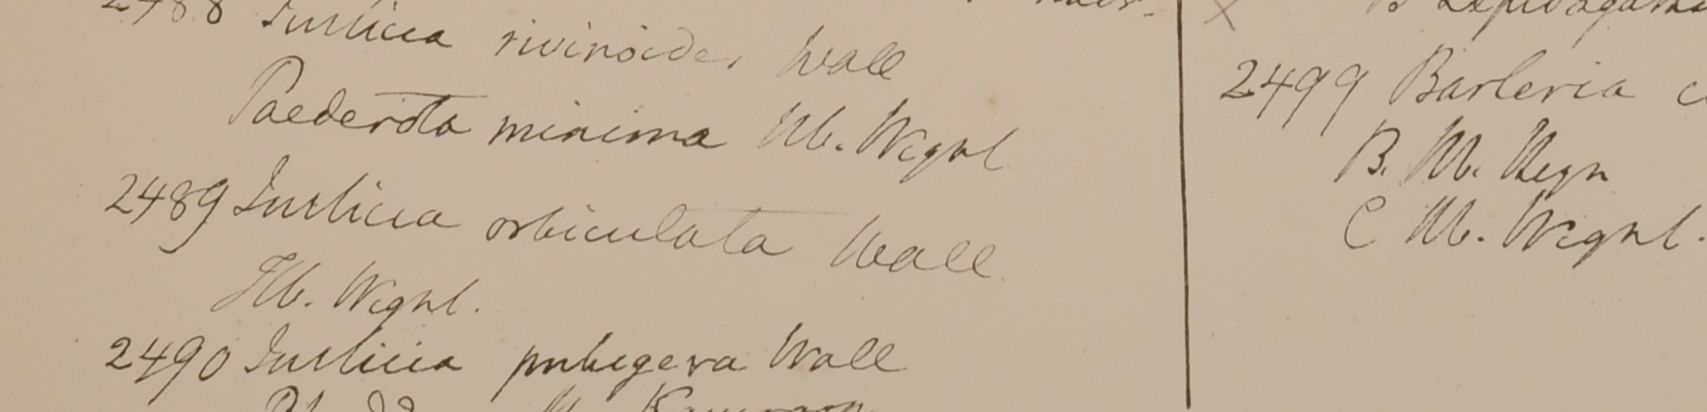 2488 Justicia rivinoides Wall
Paederota minima Hb. Wight
2489 Justicia orbiculata Wall
Hb. Wight.
2490 Justicia pubigera Wall
2499 Barleria
B. Hb. Heyn
C Hb. Wight.